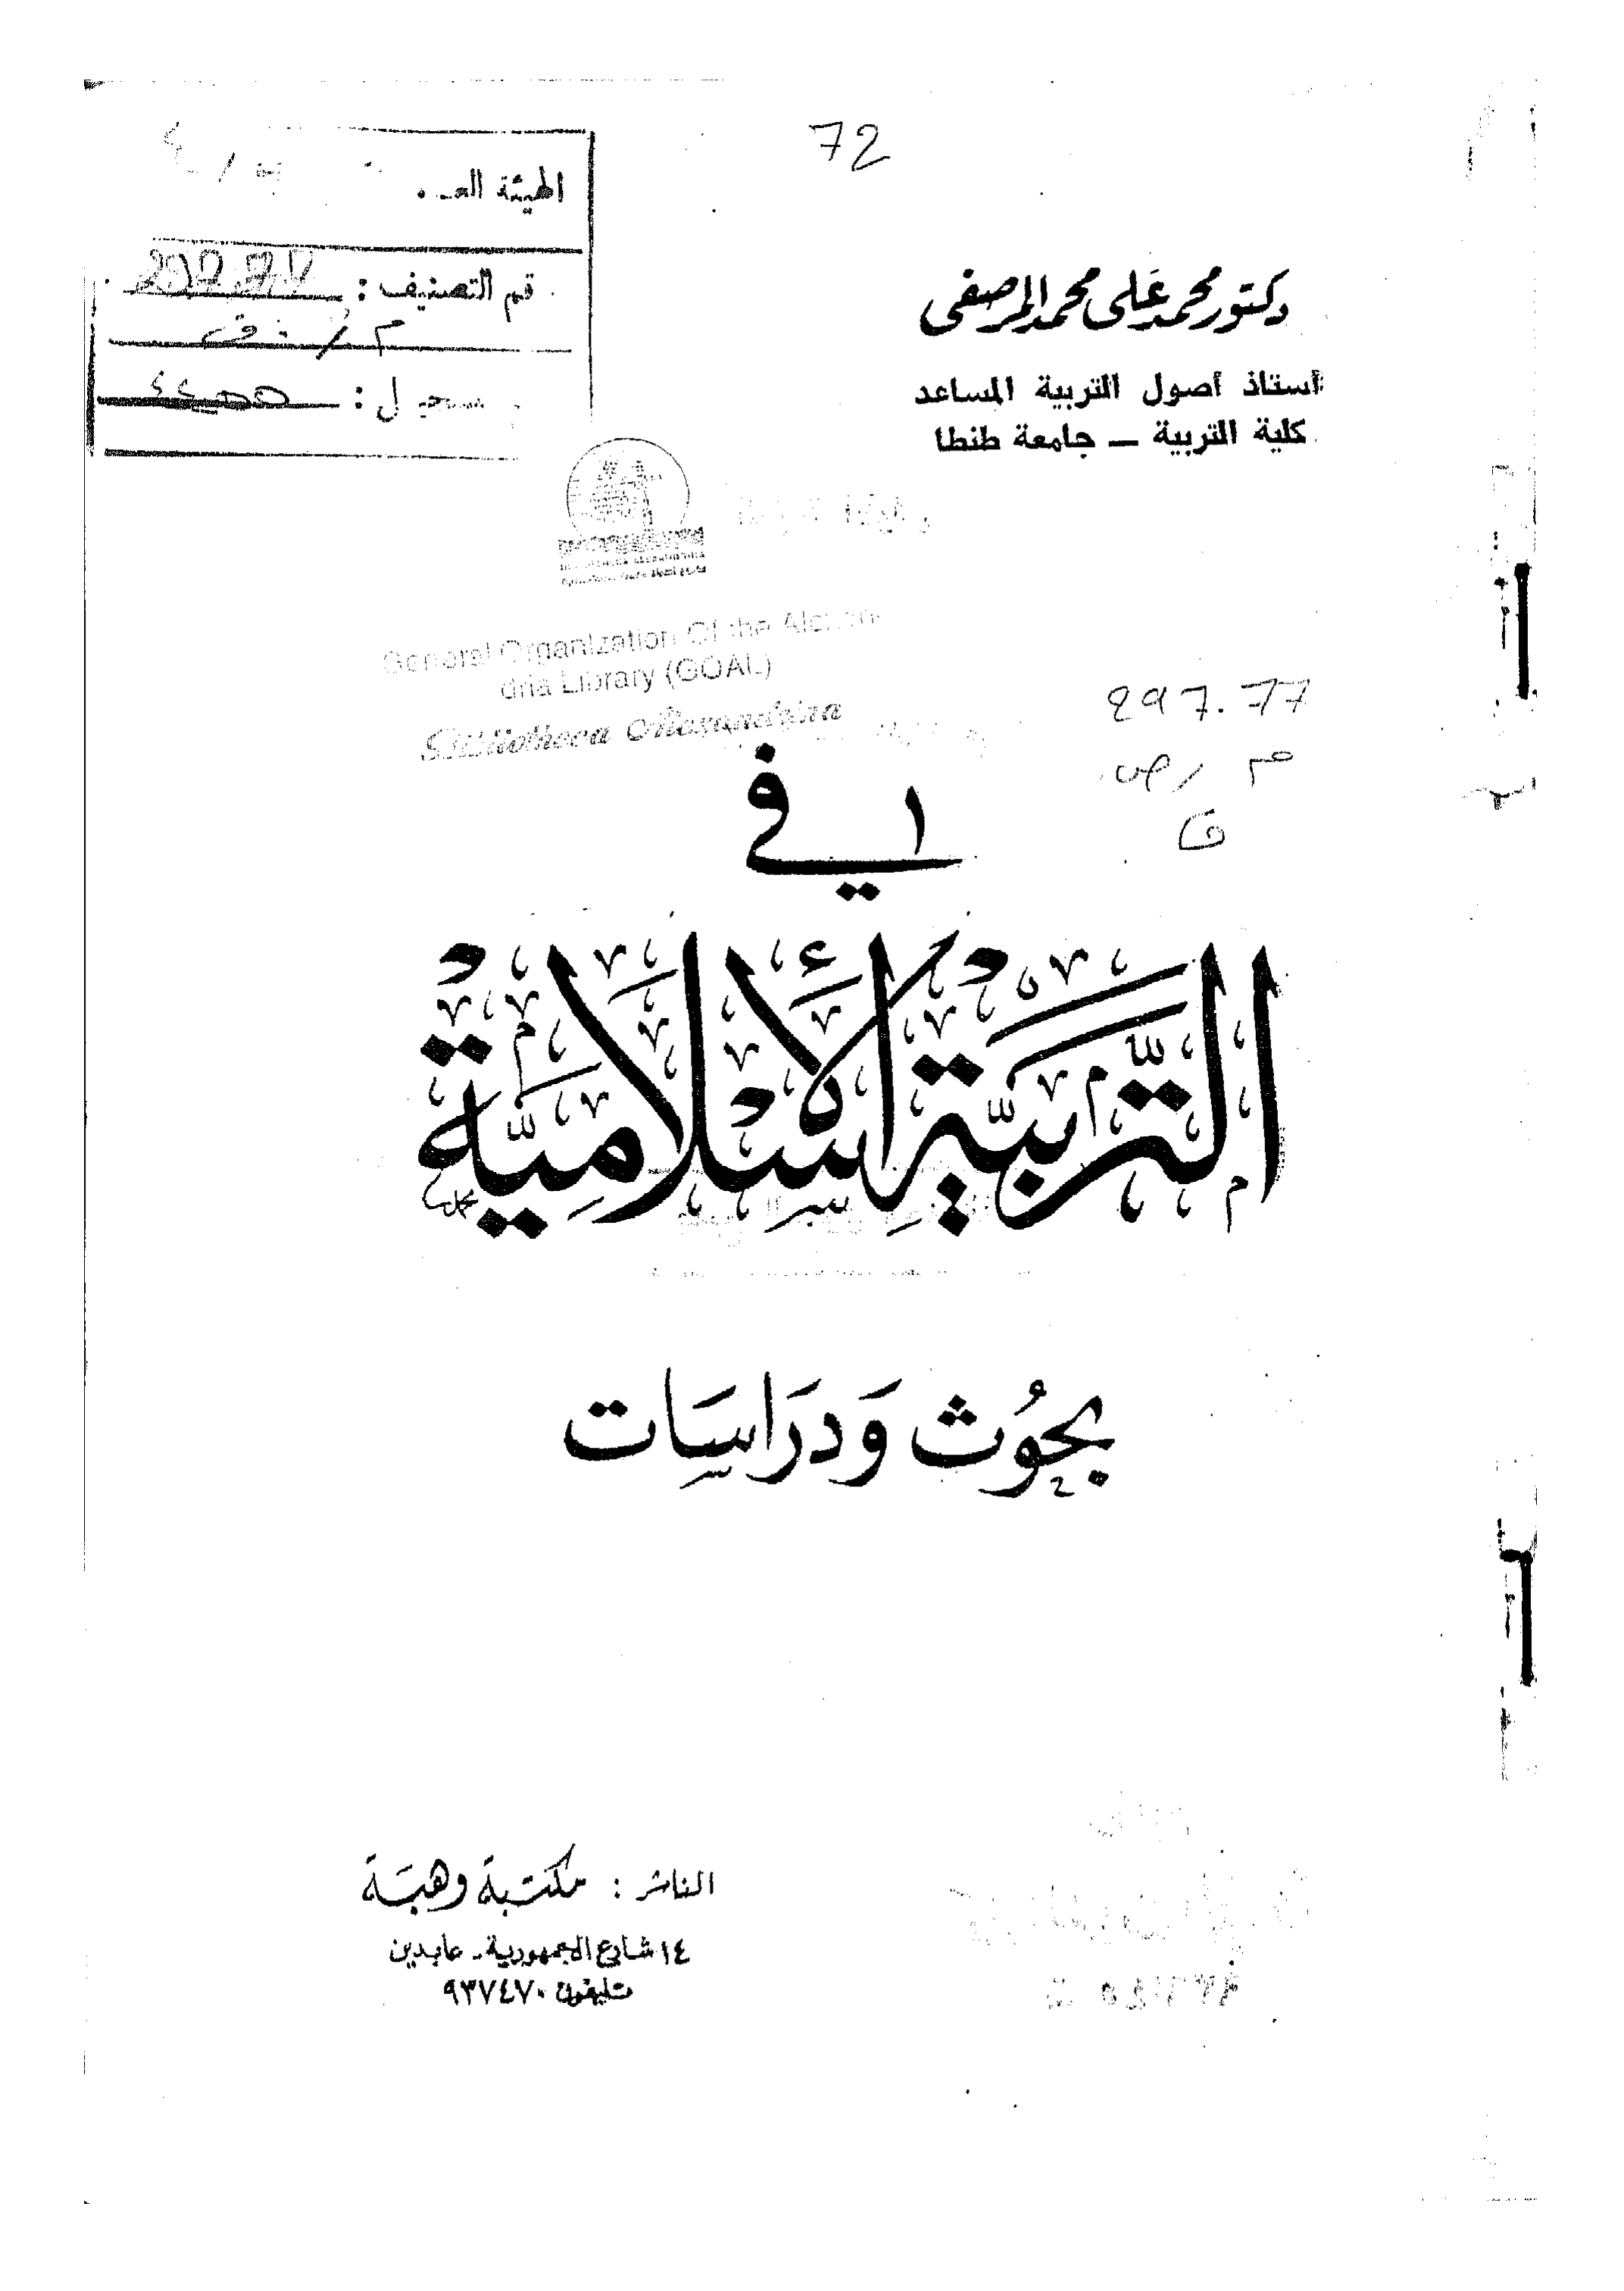 72
الهيئة
قم التصنيف :
دكتور محمد على محمد المرصفى
أستاذ أصول التربية المساعد
كلية التربية ــ جامعة طنطا
General Organization Of the
dria Library (GOAL)
Bibliotheca Alexandrina
297.77
م / ص
ف
فى
التَّربيَّةِ الأِسْلَامِيَّة
بحُوث وَدرَاسَات
الناشر : مكتبة وهبَة
١٤ شارع الجمهورية - عابدين
تليفون ٩٣٧٤٧٠